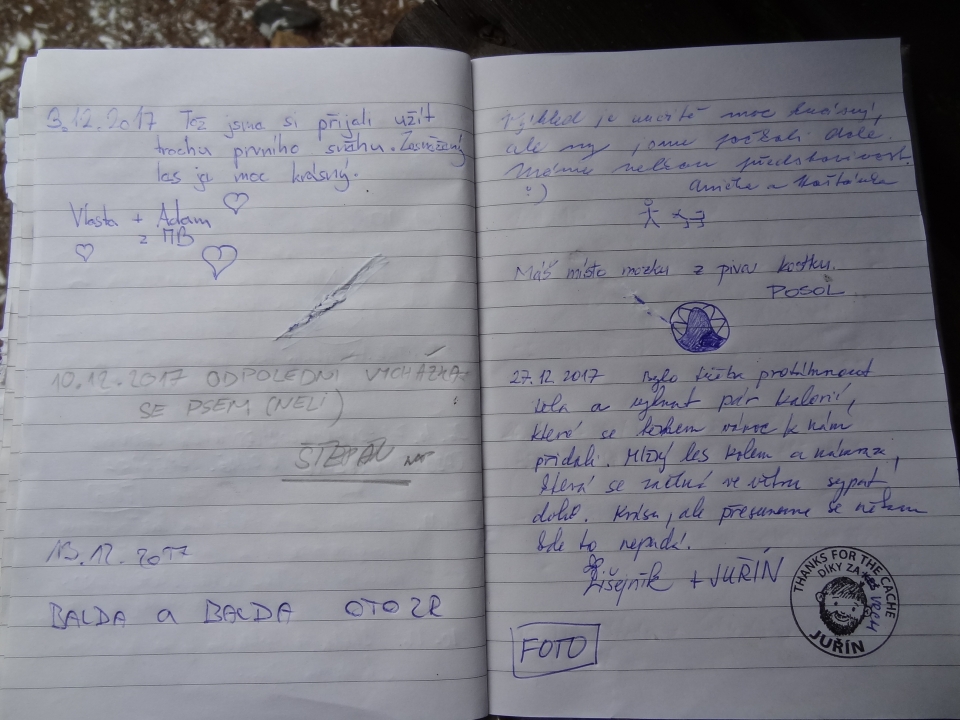 3.12.2017 Též jsme si přijeli užít
trochu prvního sněhu. Zasněžený
les je moc krásný.
Vlasta + Adam
z PB
10.12.2017 ODPOLEDNÍ VYCHÁZKA
SE PSEM (NELI)
ŠTĚPÁN
13.12.2017
BALDA a BALDA OTOZR
Výhled je určitě moc krásný,
ale my jsme počkali dole.
Máme nelson předsborivost
:)
a
Máš místo mozku z piva kostku.
POSOL
27.12.2017 Bylo třeba protáhnout
kola a vyhnat pár kalorií,
které se během vánoc k nám
přidali. Mlžný les kolem a námraza,
která se začíná ve větru sypat
dolů. Krása, ale přesuneme se někam
kde to nepadá.
Lišejník + JUŘÍN
FOTO
THANKS FOR THE CACHE
DÍKY ZA
JUŘÍN